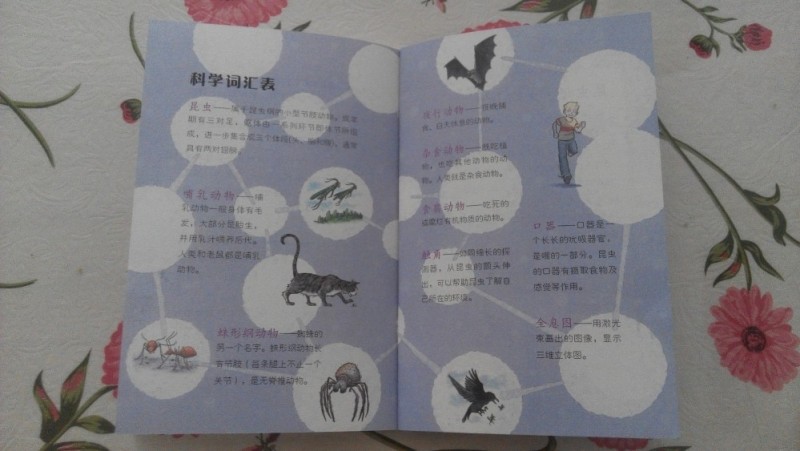 科学词汇表
昆虫——属于昆虫纲的小型节肢动物，成虫
期有三对足，躯体由一系列环节即体节所组
成，进一步集合成三个体段(头、胸和腹)，通常
具有两对翅膀。
哺乳动物——哺
乳动物一般身体有毛
发，大部分是胎生，
并用乳汁哺养后代。
人类和老鼠都是哺乳
动物。
蛛形纲动物——蜘蛛的
另一个名字。蛛形纲动物长
有节肢（每条腿上不止一个
关节），是无脊椎动物。
夜行动物——夜晚捕
食，白天休息的动物。
杂食动物——既吃植
物，也吃其他动物的动
物。人类就是杂食动物。
食腐动物——吃死的
或腐烂有机物质的动物。
触角——动物细长的探
测器，从昆虫的额头伸
出，可以帮助昆虫了解自
己所在的环境。
口器——口器是一
个长长的吮吸器官，
是嘴的一部分。昆虫
的口器有摄取食物及
感觉等作用。
全息图——用激光
束显出的图像，显示
三维立体图。